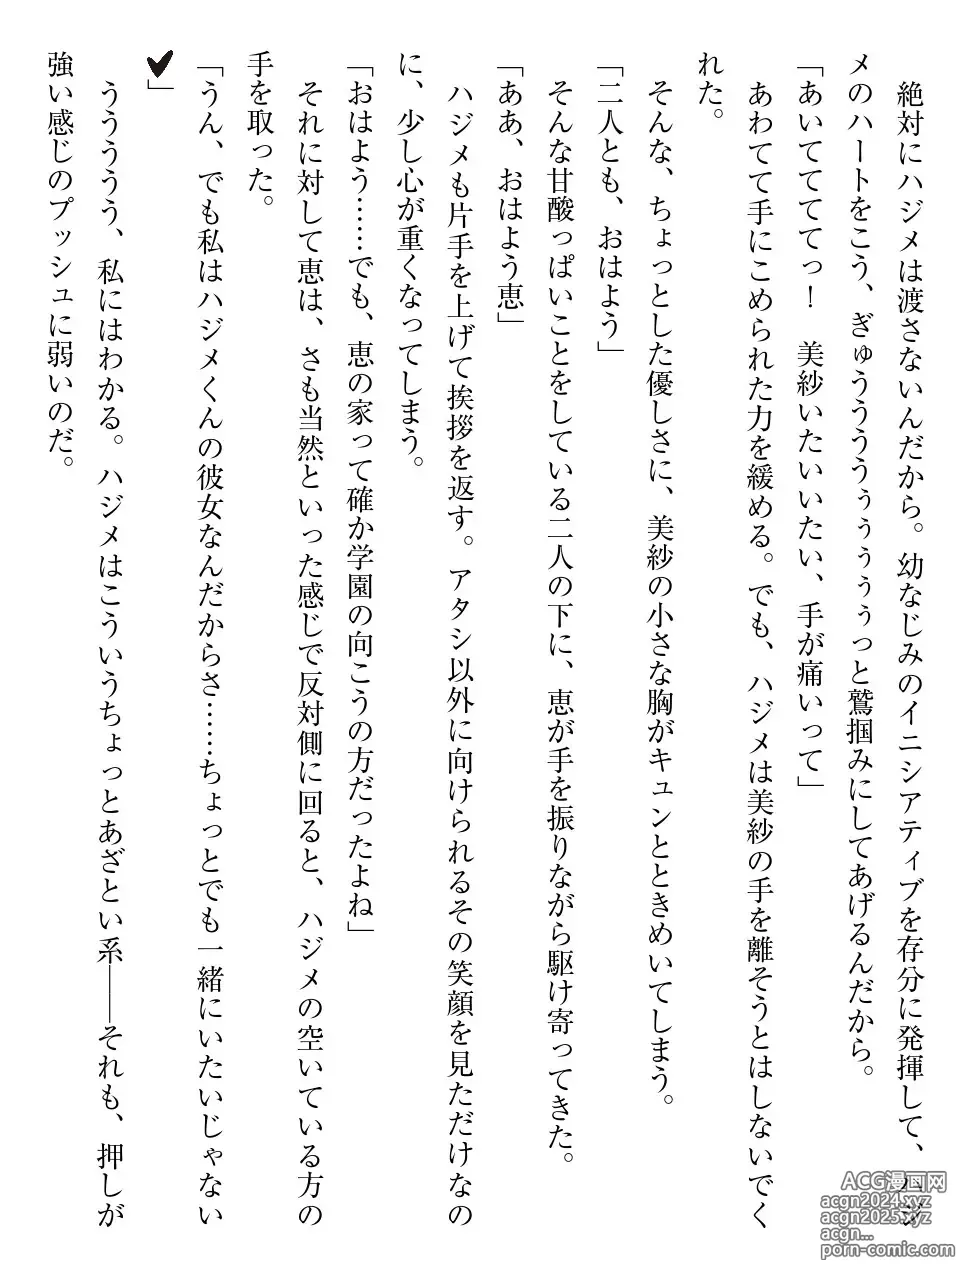 絶対にハジメは渡さないんだから。幼なじみのイニシアティブを存分に発揮して、ハジ
メのハートをこう、ぎゅうううううぅぅぅぅっと鷲掴みにしてあげるんだから。
「あいててててっ！　美紗いたいいたい、手が痛いって」
あわてて手にこめられた力を緩める。でも、ハジメは美紗の手を離そうとはしないでく
れた。
そんな、ちょっとした優しさに、美紗の小さな胸がキュンとときめいてしまう。
「二人とも、おはよう」
そんな甘酸っぱいことをしている二人の下に、恵が手を振りながら駆け寄ってきた。
「ああ、おはよう恵」
ハジメも片手を上げて挨拶を返す。アタシ以外に向けられるその笑顔を見ただけなの
に、少し心が重くなってしまう。
「おはよう……でも、恵の家って確か学園の向こうの方だったよね」
それに対して恵は、さも当然といった感じで反対側に回ると、ハジメの空いている方の
手を取った。
「うん、でも私はハジメくんの彼女なんだからさ……ちょっとでも一緒にいたいじゃない
♥」
うううううう、私にはわかる。ハジメはこういうちょっとあざとい系――それも、押しが
強い感じのプッシュに弱いのだ。
ACG漫画网
acgn2024.xyz
acgn2025.xyz
acgn...
porn-comic.com